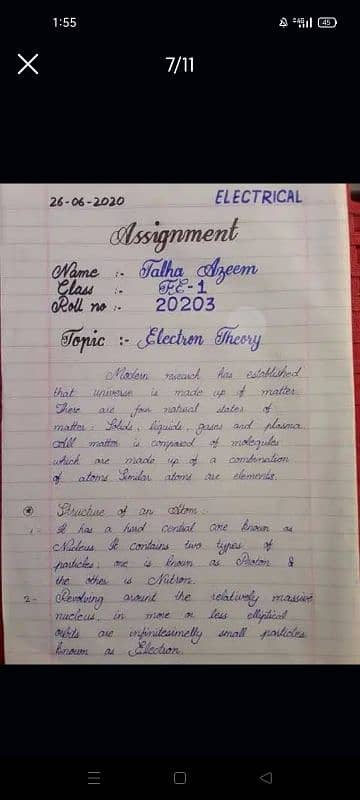 1:55
45
7/11
26-06-2020 ELECTRICAL
Assignment
Name :- Talha Azeem
Class :- FE-1
Roll no :- 20203
Topic :- Electron Theory
Modern research has established
that universe is made up of matter.
There are four natural states of
matter. Solids, liquids, gases and plasma.
All matter is composed of molecules
which are made up of a combination
of atoms. Similar atoms are elements.
Structure of an Atom :-
1- It has a hard central core known as
Nucleus. It contains two types of
particles; one is known as Proton &
the other is Nutron.
2- Revolving around the relatively massive
nucleus, in more or less elliptical
orbits are infinitesimelly small particles
known as Electron.